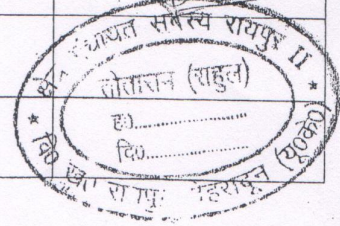 क्षेत्र पंचायत सदस्य रायपुर II
तोताराम (राहुल)
ह०..................
दि०..................
वि० ख० रायपुर देहरादून (यू०के०)